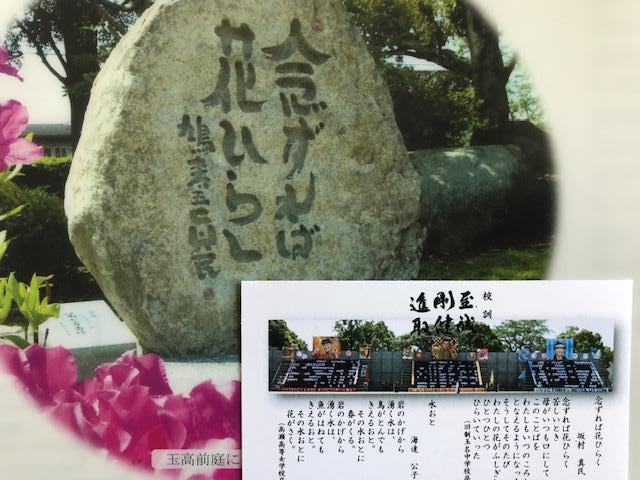 念ずれば
花ひらく
真民
玉高前庭に
校訓
至誠
剛健
進取
念ずれば花ひらく
坂村 真民
念ずれば花ひらく
苦しいとき
母がいつも口にして
このことばを
わたしもいつのころ
となえるようになっ
そうしてそのたび
わたしの花がふしぎ
ひとつひとつ
ひらいていった
(旧制玉名中学校
水おと
海達 公子
岩のかげから
湧く水は、
鳥がとんでも
きえるおと。
その水おとに
春がくる。
岩のかげから
湧く水は、
魚がはねても
きえるおと。
その水おとに
花がさく。
(高瀬高等女学校